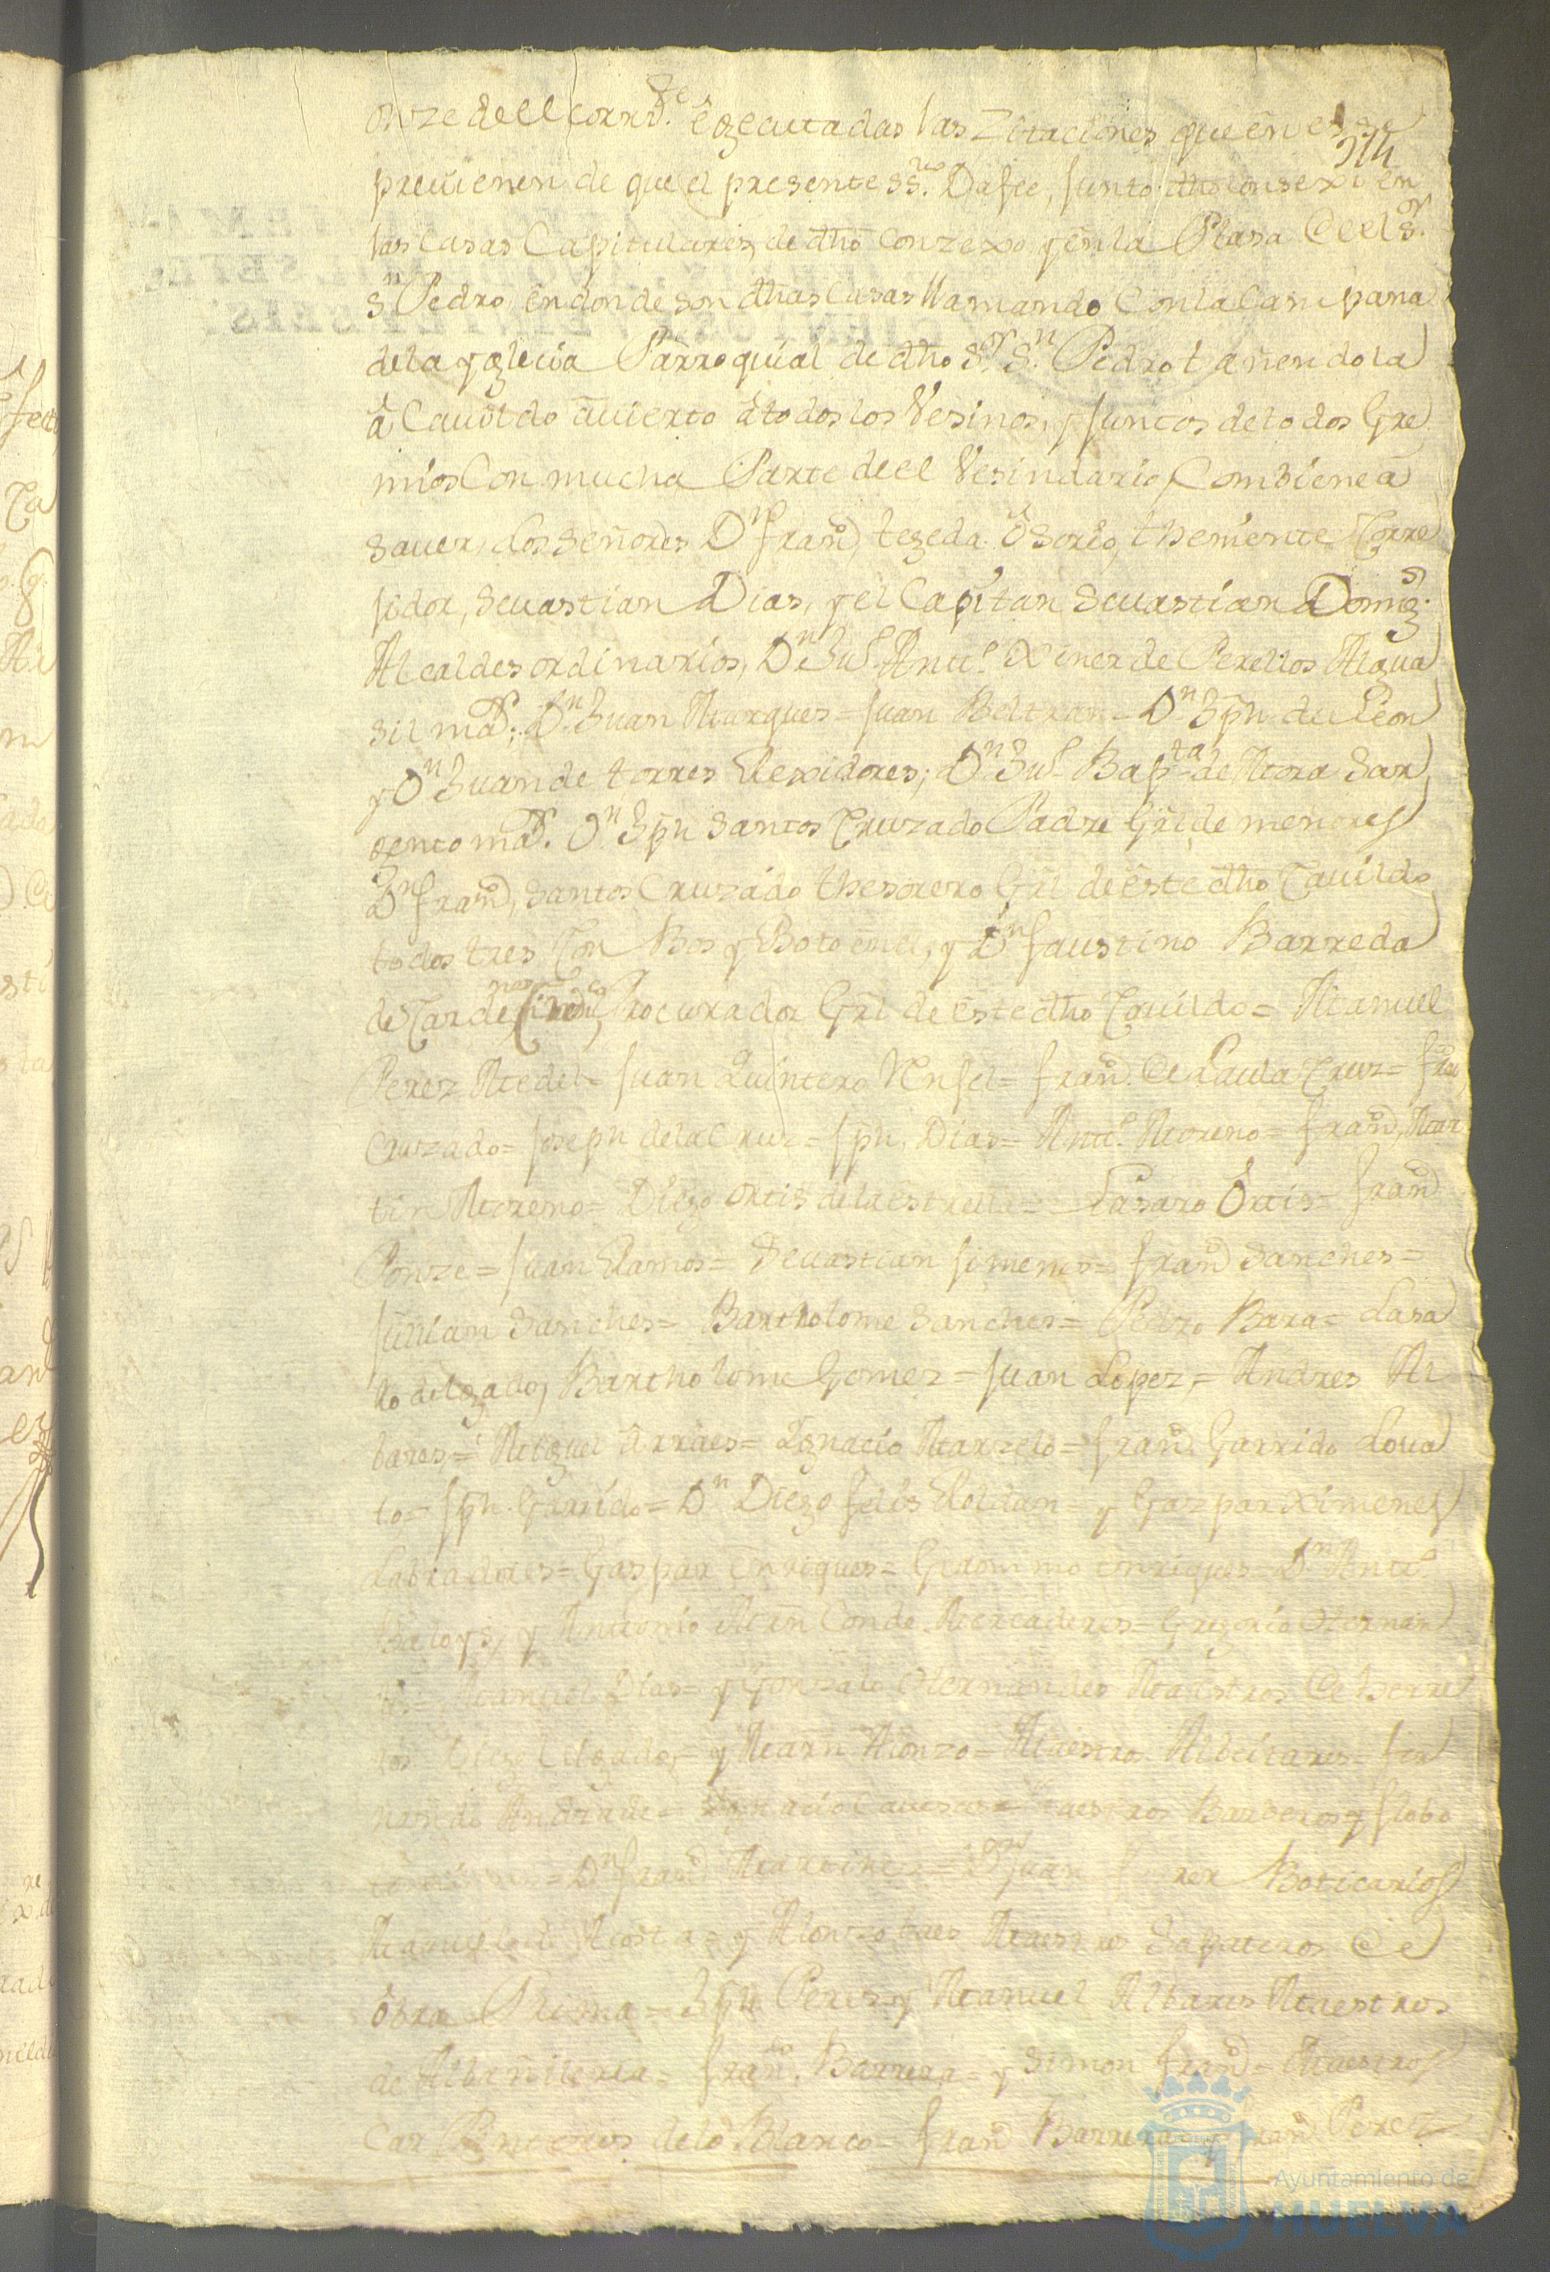 onze deel Corrte. êxecutadas las Zitaciones que en este
214
previenen de que el presente ssno. Da fee, junto dho Consexo en
las Casas Capitulares, de dho Conzexo y en la Plasa de el Sr.
Sn Pedro, en donde son dhas Casas llamando Con la Campana
de la yglecia Parroquial de dho Sr. Sn. Pedro tañendola
â Cavildo avierto â todos los Vesinos, y juntos de todos Gre
mios Con mucha Parte de el Vesindario, Combiene â
saver, los señores Dn franco, tegeda ôsorio, theniente Corre
jidor, Sevastian Dias, y el Capitan Sevastian Doming.
Alcaldes ordinarios, Dn. Juo. Anto. Ximer de Perellos Algua
sil mor; Dn. Juan Marques = Juan Beltran = Dn. Jph de Leon
y Dn Juan de torres Rexidores; Dn. Juo. Bapta. de Mora Sar
gento mor. Dn Jph Santos Cruzado Padre Grl de menores
Dn franco, Santos Cruzado thesorero Grl de este dho Cavildo
todos tres Con Bos y Boto en el, y Dn faustino Barreda
de Cardenas Sindico Procurador Grl de este dho Cavildo = Manuel
Perez Medel = Juan Quintero = franco. de Paula Cruz = franco
Cruzado = Joseph de la Cruz = Jph. Dias = Anto. Moreno = franco, Mar
tin Moreno = Diego Ortis de la estrella = Lasaro Ortis = franco
Ponze = Juan Ramos = Sevastian Jimenes = franco Sanches =
Julian Sanches = Bartholome Sanches = Pedro Bara = Lasa
ro delgado, Bartholome Gomez = Juan Lopez, = Andres Al
bares, = Miguel Arraes = Ygnacio Marzelo = franco. Garrido Lova
to = Jph. Garrido = Dn Diego felis Roldan = y Gazpar Ximenes
Labradores = Gaspar Enriques = Gedornimo enriques = Dn. Anto.
y Antonio Mrn Conde Mercaderes = Gregorio Hernan
Manuel Dias = y Gonzalo Hernandes Maestros de herre
ros Diego delgado, = y Marn Alonzo = Maestros Albeitares = fer
nando Andrade = Ygnacio Cavesas = Maestros Barberos y flobo
= Dn franco Martines = Dn Juan Boticarios
Manuel de Acosta = y Alonzo baes Maestros Sapateros de
ôbra Prima = Jph Peres y Manuel Albares Maestros
de Albañileria = franco. Barrera = y Simon franco = Maestros
Carpinteros de lo Blanco = franco Barrera y franco Perez
Ayuntamiento de
HUELVA